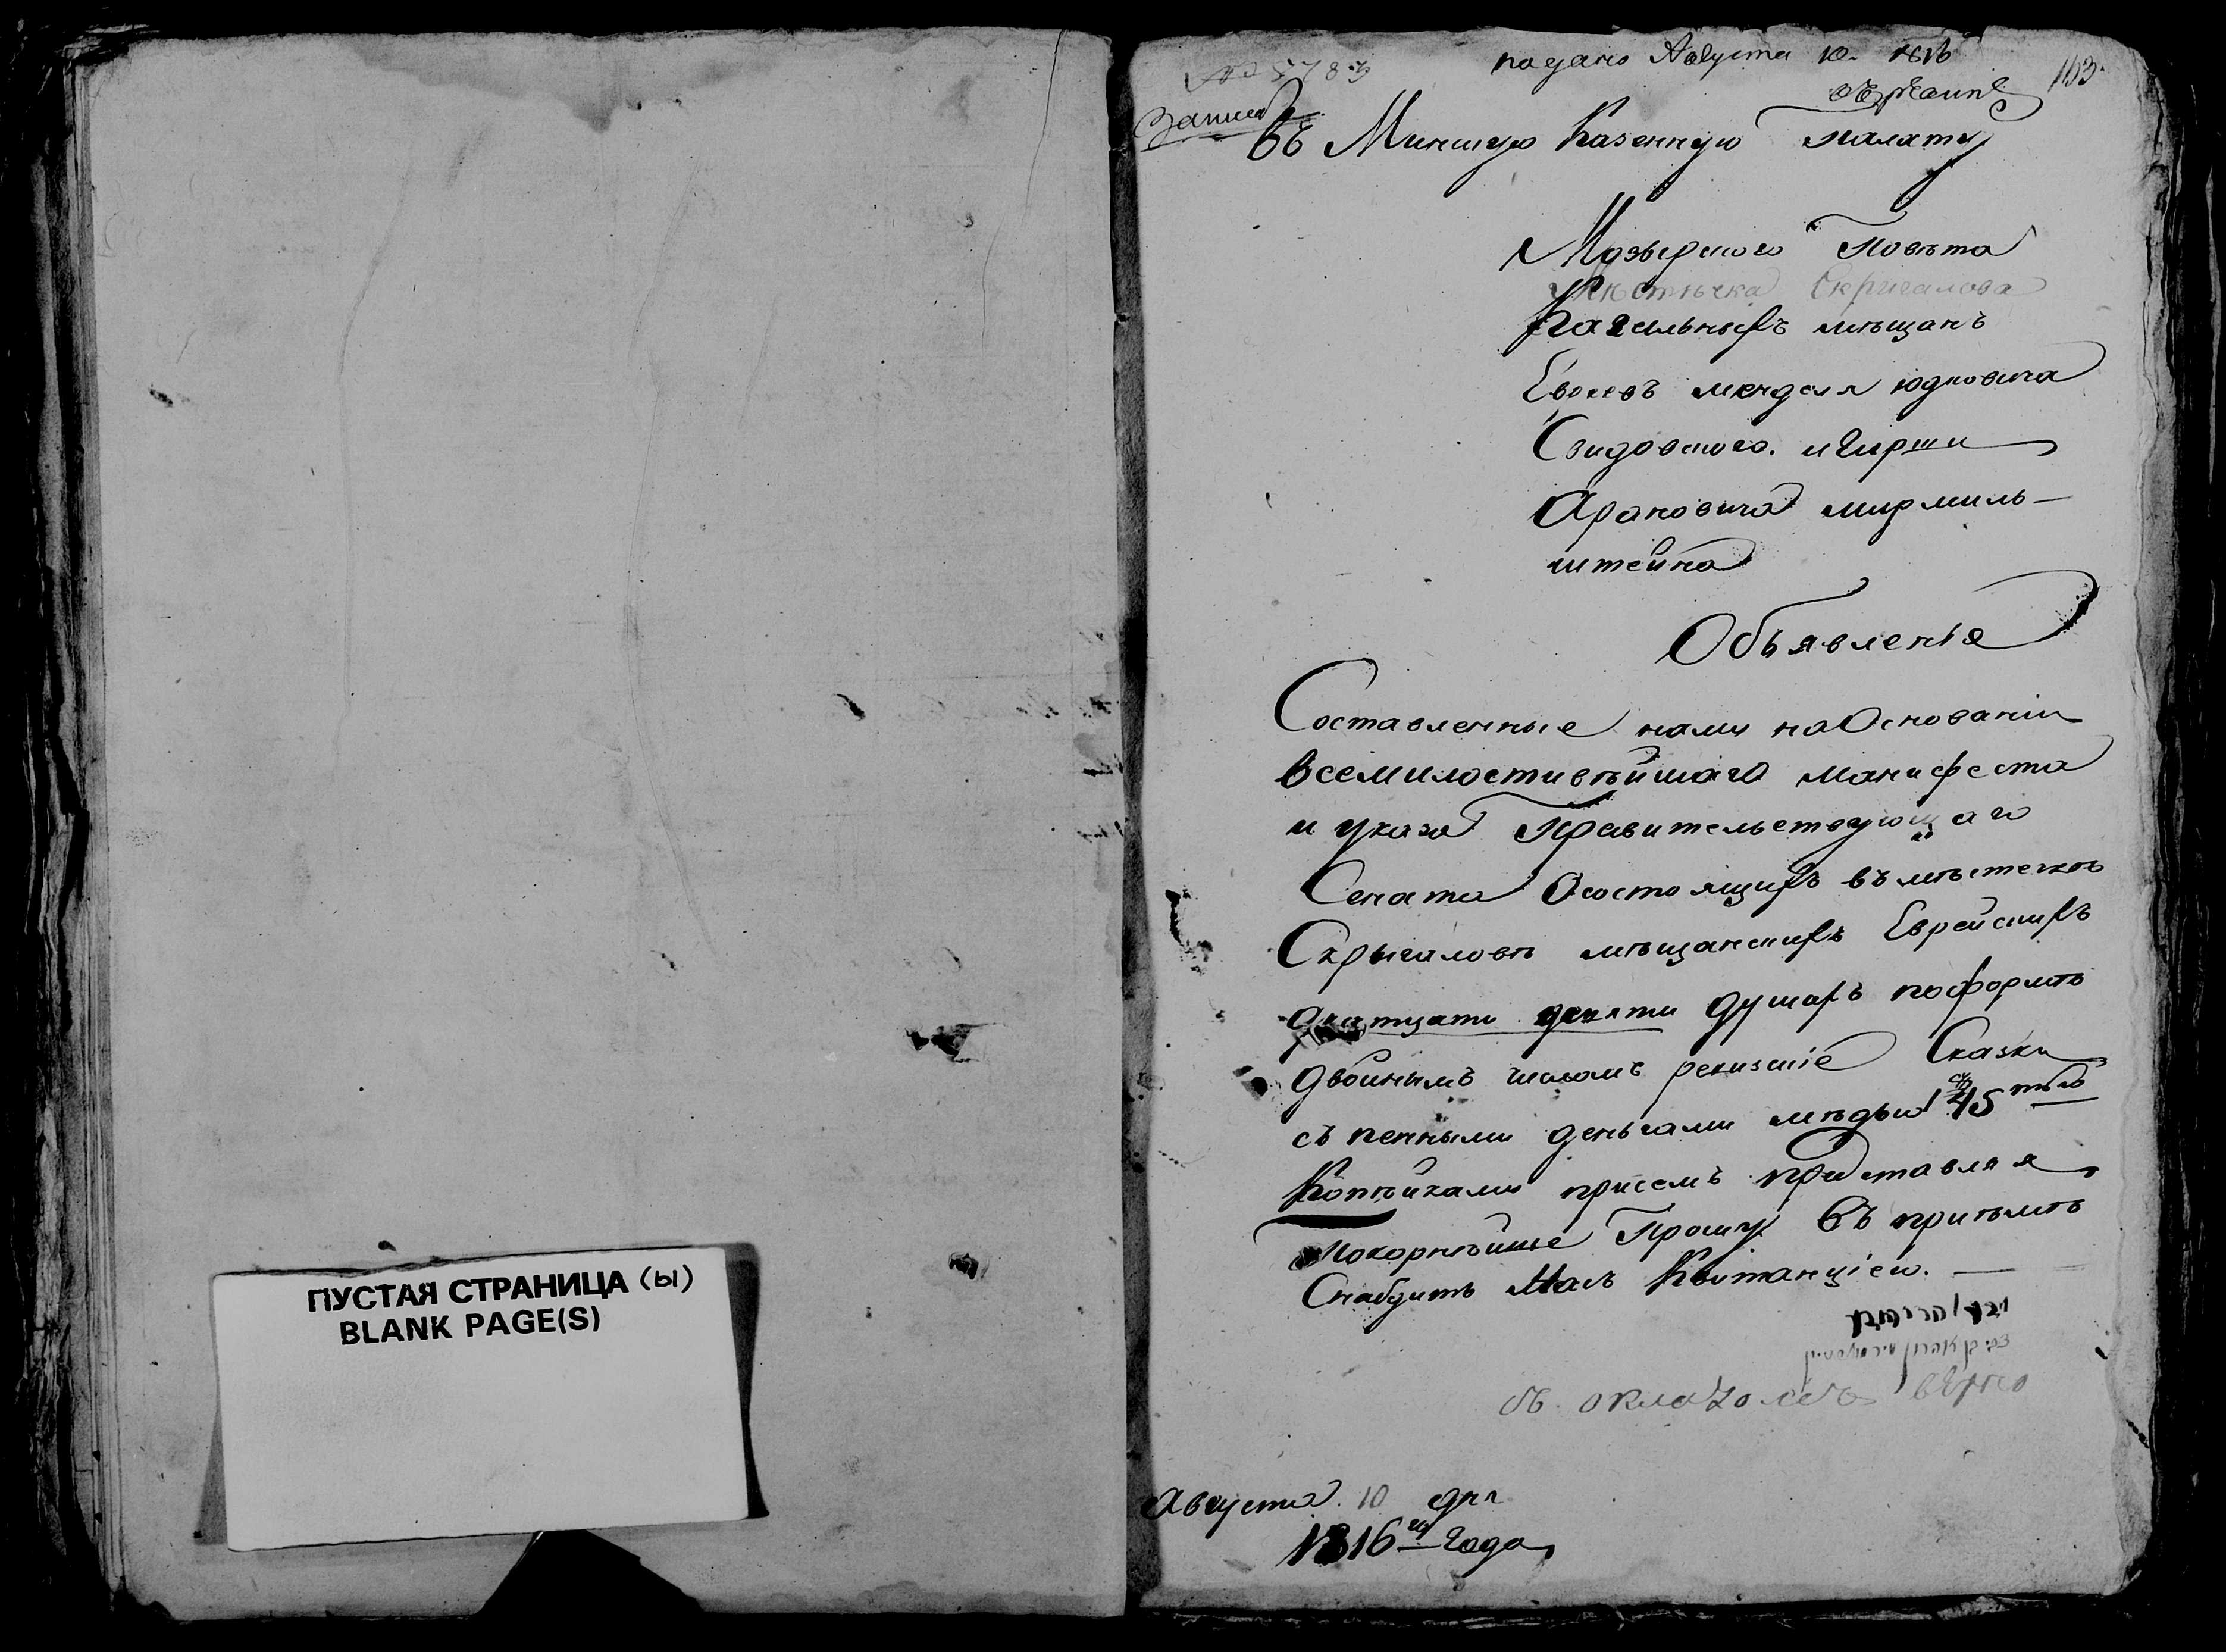 ПУСТАЯ СТРАНИЦА (ы)
BLANK PAGE(S)
№ 5783
подано Августа 10. 1816
103.
Въ Минскую Казенную Палату
Мозырского Повѣта
Мѣстечка Скригалова
Кагальныхъ мѣщанъ
Евреевъ менделя юдковича
Свидовского. и Гирши
Ароновича мирмиль-
штейна
Объявленіе
Составленные нами на Основаніи
всемилостивѣйшаго манифеста
и указа Правительствующаго
Сената О состоящихъ въ мѣстечкѣ
Скрыгаловѣ мѣщанскихъ Еврейскихъ
душахъ по формѣ
двойнымъ числомъ ревизскіе Сказки
съ пенными деньгами мѣдью 45
Копѣйками присемъ представляя
покорнѣйше Прошу Въ пріемѣ
Снабдить Насъ Квитанціею. —
вѣрно
Августа. 10 дня
1816го Года